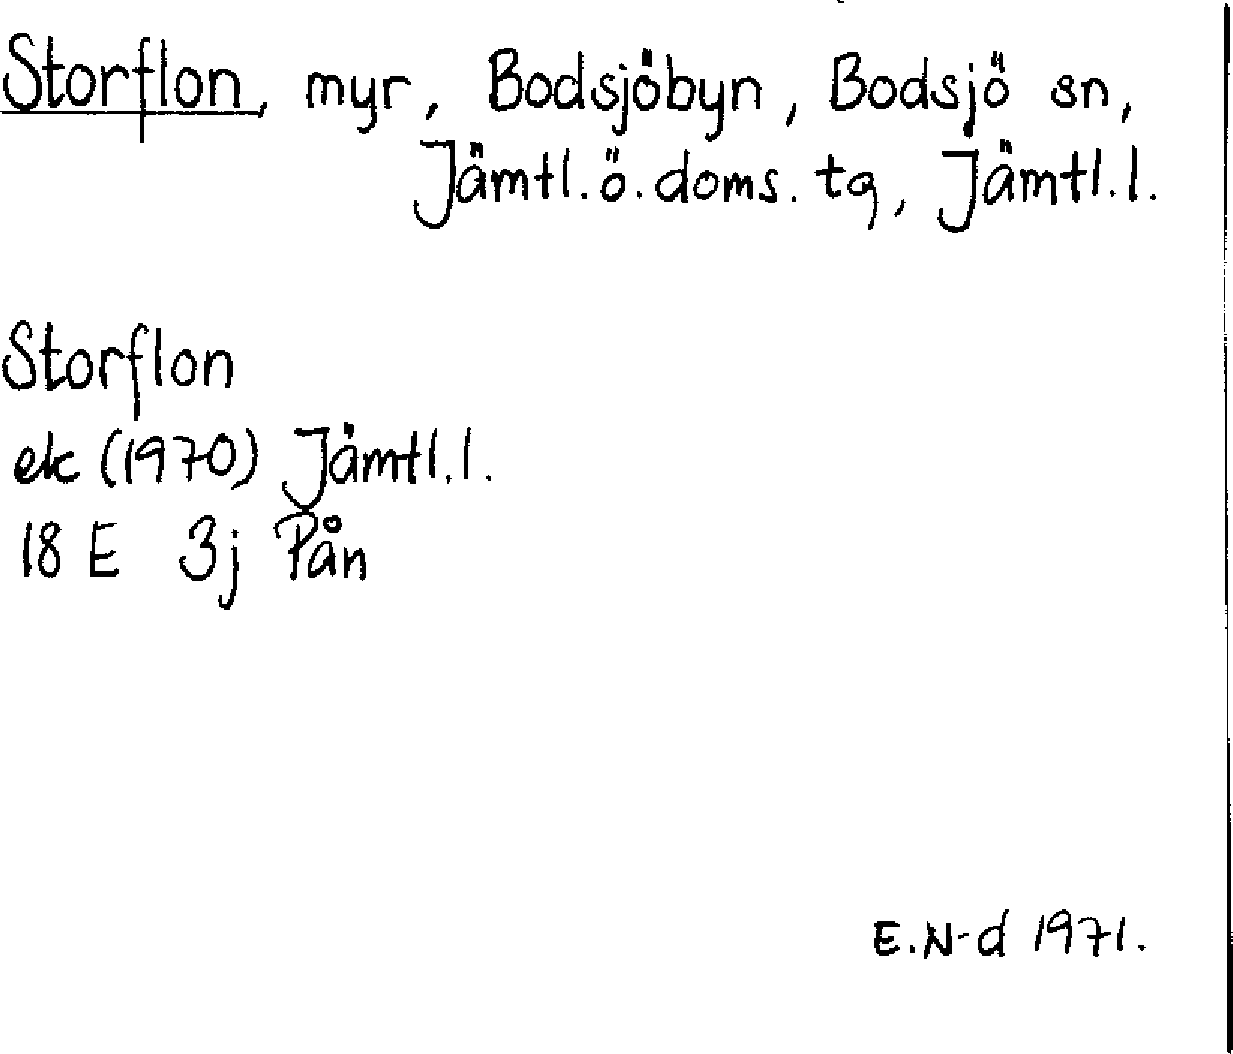 Storflon, myr, Bodsjöbyn, Bodsjö sn,
Jämtl.ö.doms.tg, Jämtl.l.
Storflon
ek (1970) Jämtl.l.
18 E 3j Pån
E.N-d 1971.